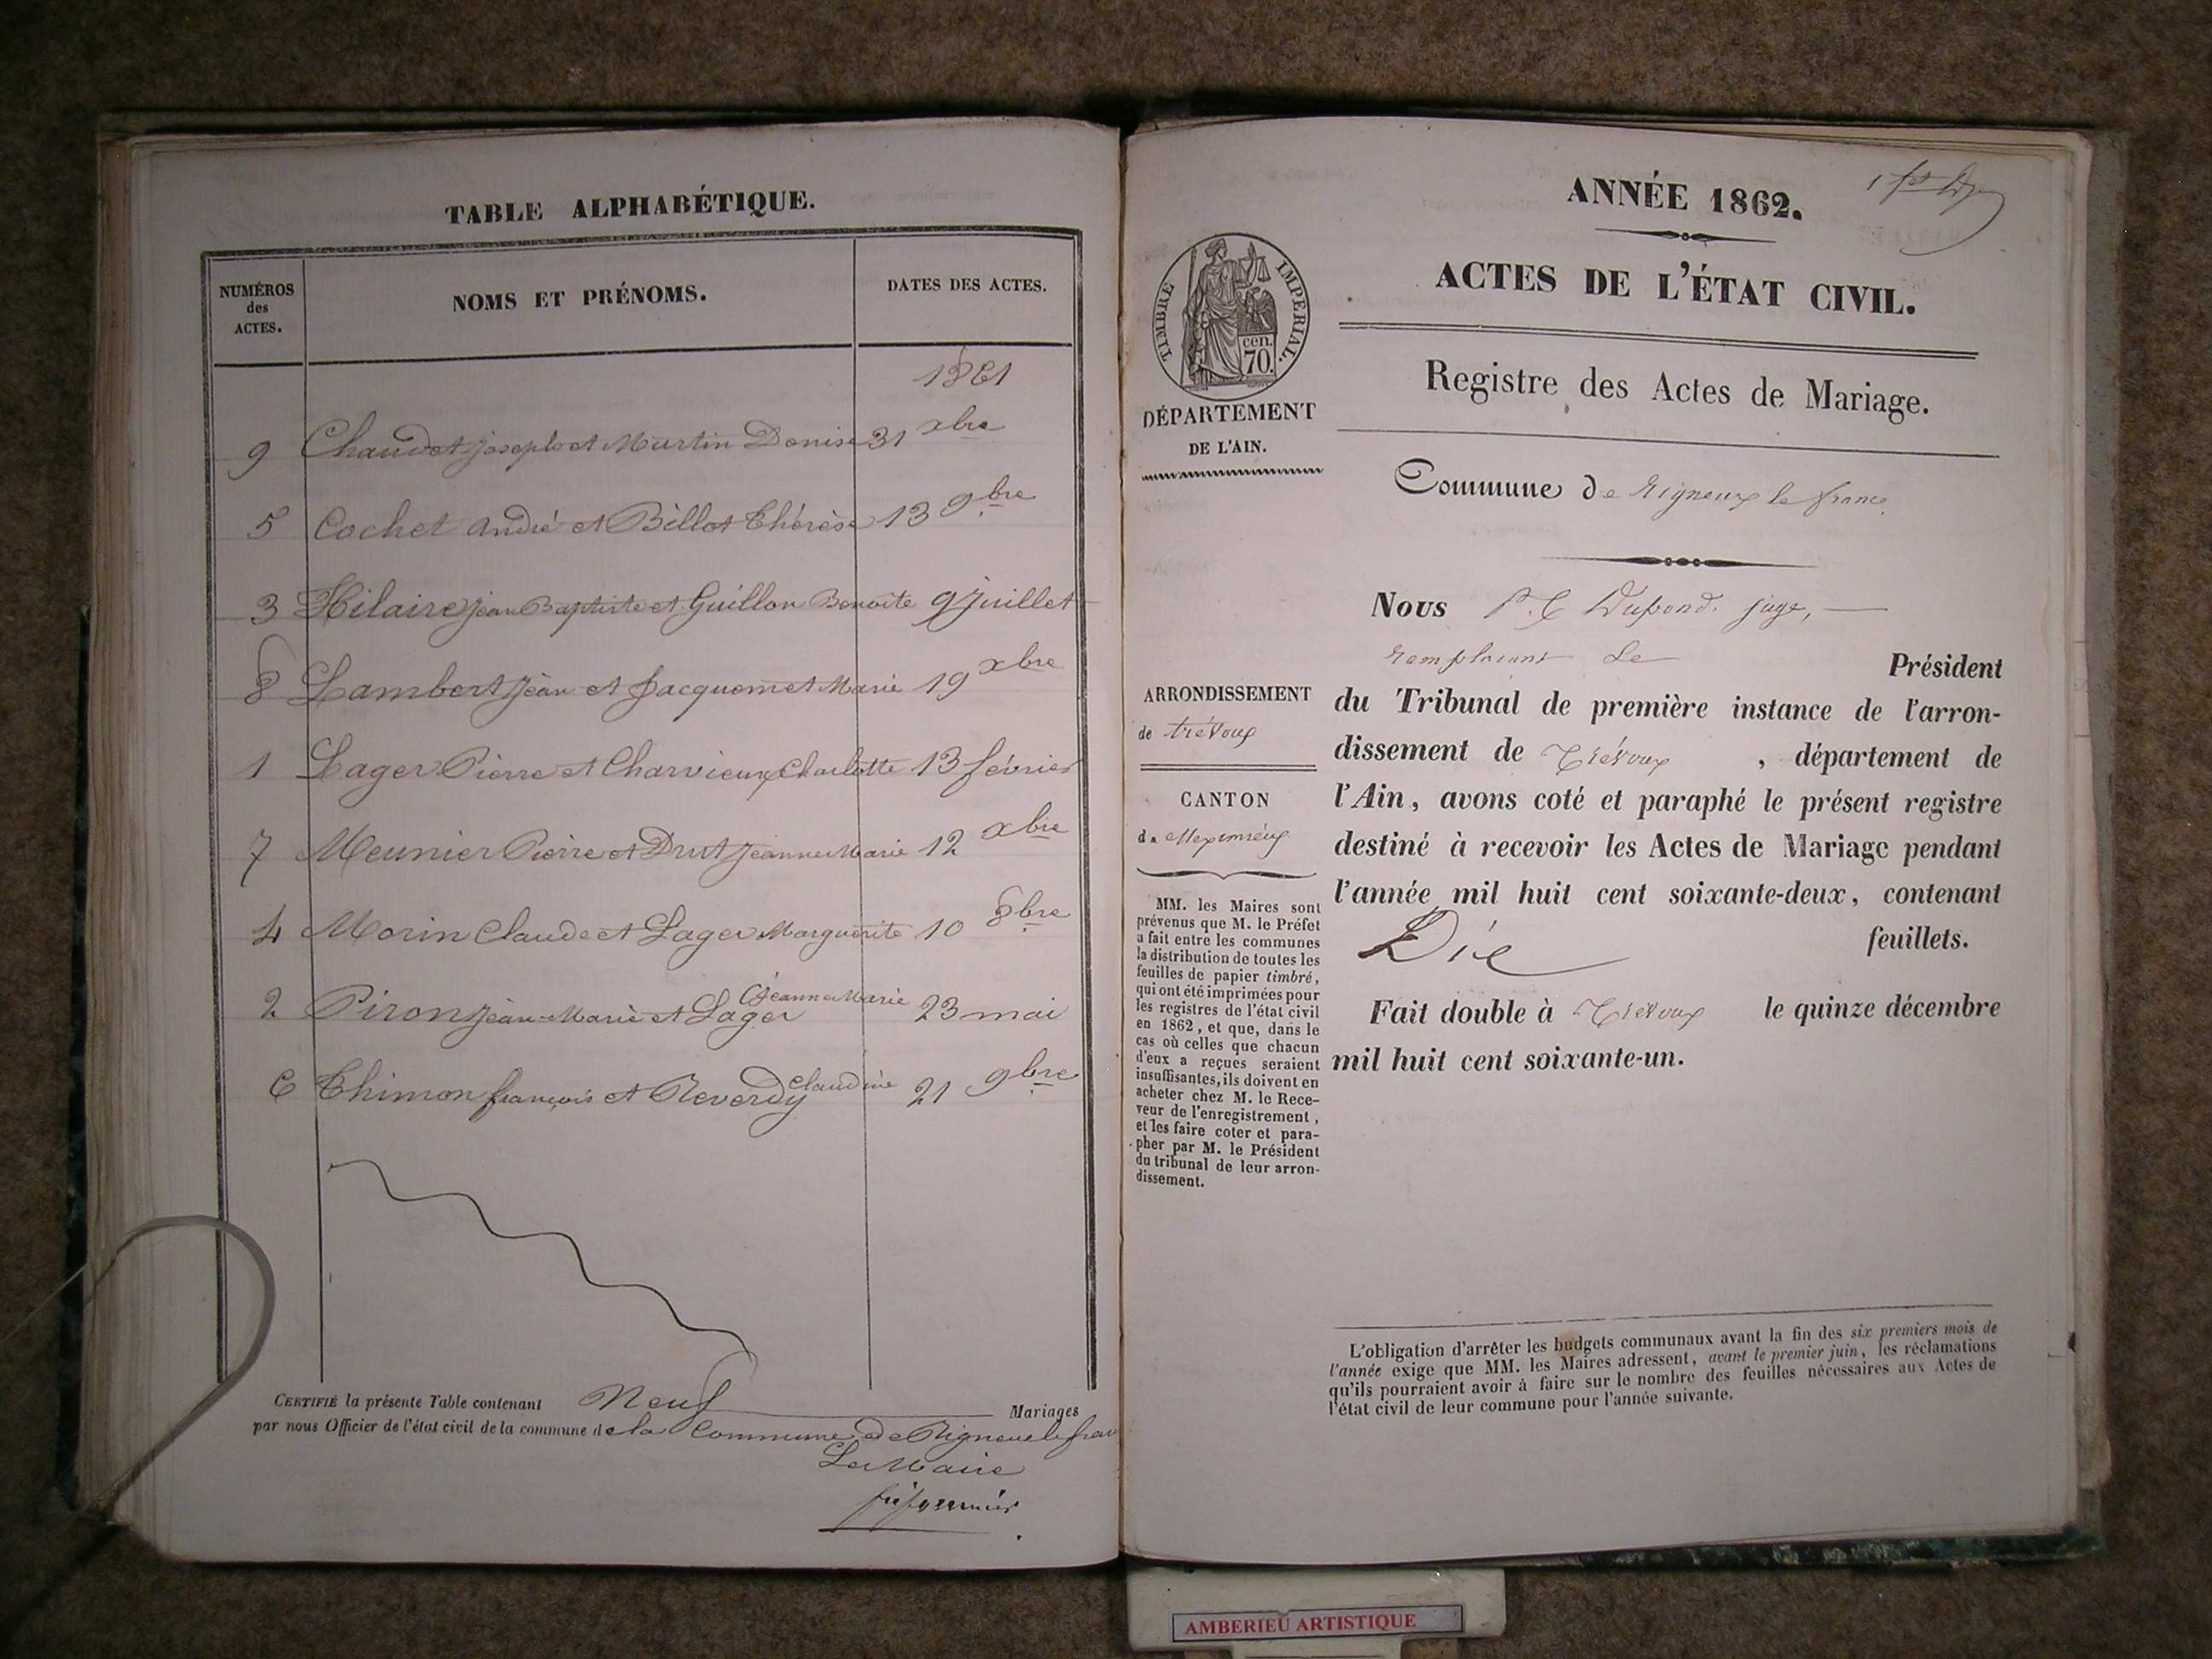 TABLE ALPHABÉTIQUE.
NUMÉROS
des
ACTES.
NOMS ET PRÉNOMS.
DATES DES ACTES.
1861
9 Chaudet Joseph et Martin Denise 31 xbre
5 Cochet André et Billot Thérèse 13 9bre
3 Hilaire Jean Baptiste et Guillon Benoite 9 Juillet
8 Lambert Jean et Jacquemet Marie 19 xbre
1 Lager Pierre et Charvieux Charlotte 13 février
7 Meunier Pierre et Drut Jeanne Marie 12 xbre
4 Morin Claude et Lager Marguerite 10 8bre
2 Piron Jean-Marie et Lager Jeanne Marie 23 mai
6 Thimon françois et Reverdy Claudine 21 9bre
CERTIFIÉ la présente Table contenant Neuf Mariages
par nous Officier de l'état civil de la commune de la Commune de Rigneux le fran
Le Maire
ANNÉE 1862.
ACTES DE L'ÉTAT CIVIL.
TIMBRE IMPERIAL.
cen.
70.
DÉPARTEMENT
DE L'AIN.
Registre des Actes de Mariage.
Commune de Rigneux le franc
Nous P. C Dupond. juge,
remplaçant Le Président
du Tribunal de première instance de l'arron-
dissement de Trévoux , département de
l'Ain, avons coté et paraphé le présent registre
destiné à recevoir les Actes de Mariage pendant
l'année mil huit cent soixante-deux, contenant
Dix feuillets.
Fait double à Trévoux le quinze décembre
mil huit cent soixante-un.
ARRONDISSEMENT
de trévoux
CANTON
de Meximieux
MM. les Maires sont
prévenus que M. le Préfet
a fait entre les communes
la distribution de toutes les
feuilles de papier timbré,
qui ont été imprimées pour
les registres de l'état civil
en 1862, et que, dans le
cas où celles que chacun
d'eux a reçues seraient
insuffisantes, ils doivent en
acheter chez M. le Rece-
veur de l'enregistrement,
et les faire coter et para-
pher par M. le Président
du tribunal de leur arron-
dissement.
L'obligation d'arrêter les budgets communaux avant la fin des six premiers mois de
l'année exige que MM. les Maires adressent, avant le premier juin, les réclamations
qu'ils pourraient avoir à faire sur le nombre des feuilles nécessaires aux Actes de
l'état civil de leur commune pour l'année suivante.
AMBERIEU ARTISTIQUE